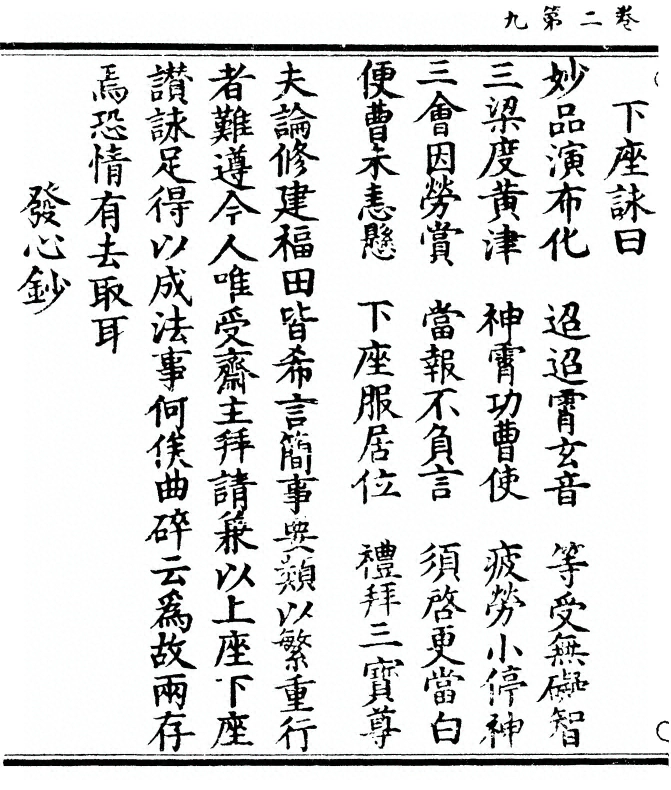 卷二第九
下座詠曰
妙品演布化　迢迢霄玄音　等受無礙智
三梁度黃津　神霄功曹使　疲勞小停神
三會因勞賞　當報不負言　須啓更當白
便曹未恚懸　下座服居位　禮拜三寶尊
夫論修建福田皆希言簡事類以繁重行
者難遵今人唯受齋主拜請兼以上座下座
讚詠足得以成法事何俟曲碎云爲故兩存
焉恐情有去取耳
發心鈔